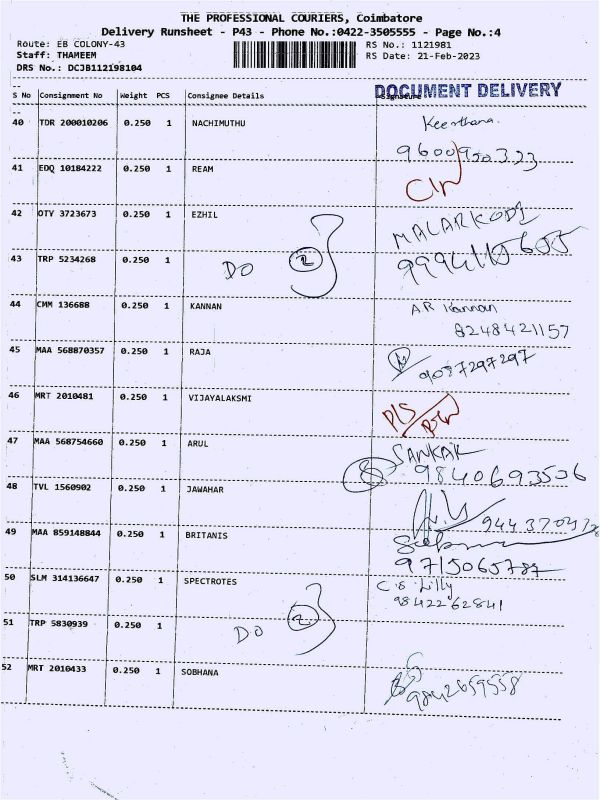 THE PROFESSIONAL COURIERS, Coimbatore
Delivery Runsheet - P43 - Phone No.:0422-3505555 - Page No.:4
Route: EB COLONY-43
RS No.: 1121981
Staff: THAMEEM
RS Date: 21-Feb-2023
DRS No.: DCJB112198104
DOCUMENT DELIVERY
S No Consignment No Weight PCS Consignee Details Signature
40 TDR 200010206 0.250 1 NACHIMUTHU Keerthana.
9600950323
41 EDQ 10184222 0.250 1 REAM
42 OTV 3723673 0.250 1 EZHIL MALARKODI
43 TRP 5234268 0.250 1 DO 2
44 CMM 136688 0.250 1 KANNAN A.R Kannan
8248421157
45 MAA 568870357 0.250 1 RAJA
9087297297
46 MRT 2010481 0.250 1 VIJAYALAKSMI
47 MAA 568754660 0.250 1 ARUL SANKAR
9840693506
48 TVL 1560902 0.250 1 JAWAHAR
49 MAA 859148844 0.250 1 BRITANIS
9715065787
50 SLM 314136647 0.250 1 SPECTROTES C.S. Lilly
9842262841
51 TRP 5830939 0.250 1 DO 2
52 MRT 2010433 0.250 1 SOBHANA
9842659558